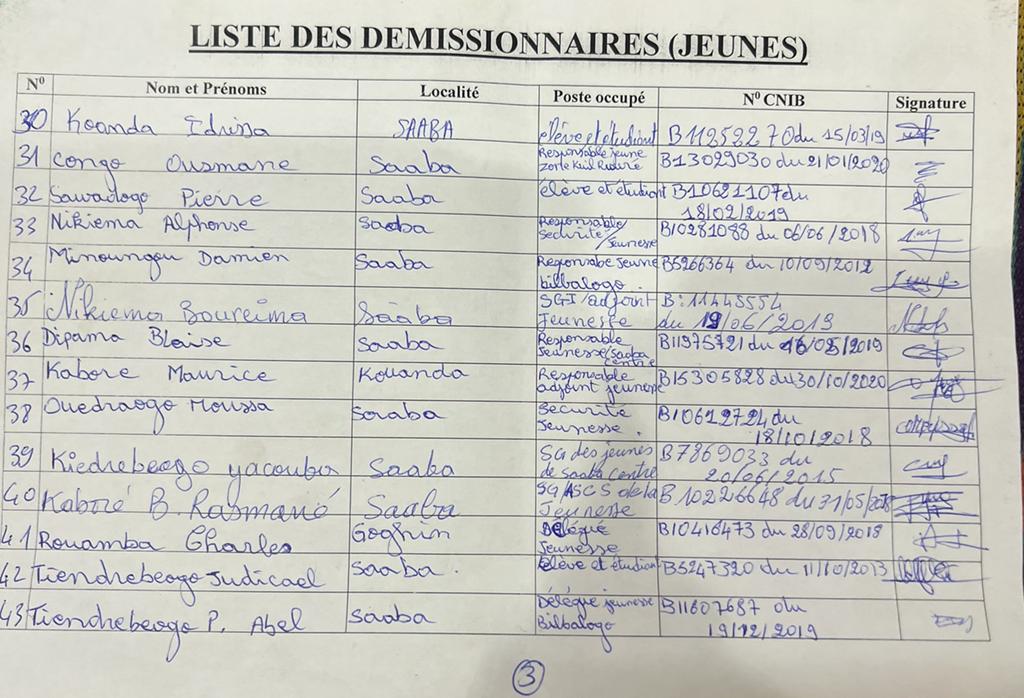 LISTE DES DEMISSIONNAIRES (JEUNES)
N⁰ Nom et Prénoms Localité Poste occupé N⁰ CNIB Signature
30 Koanda Idrissa SAABA elève et étudiant B11252270 du 15/03/19
31 Congo Ousmane Saaba Responsable jeune zone B13029030 du 21/01/2020
32 Sawadogo Pierre Saaba élève et étudiant B10621107 du
18/02/2019
33 Nikiema Alphonse Saaba Responsable
sécurité/Jeunesse B10281088 du 06/06/2018
34 Minoungou Damien Saaba Responsabe jeune
bilbalogo. B5266364 du 10/09/2012
35 Nikiema Boureima Saaba SGI/adjoint
Jeunesse B:11445554
du 19/06/2019
36 Dipama Blaise Saaba Responsable
Jeunesse/Saaba
centre B11975721 du /2019
37 Kabore Maurice Kouanda Responsable
adjoint jeunesse B15305828 du 30/10/2020
38 Ouedraogo Moussa Saaba Securite
Jeunesse. B10612724 du
18/10/2018
39 Kiedrebeogo yacouba Saaba SG des jeunes
de Saaba centre B7869033 du
20/06/2015
40 Kaboré B. Rasmané Saaba SG/ASCS de la
Jeunesse B10226648 du 31/05/2018
41 Rouamba Charles Goghin Délégué
Jeunesse B10416473 du 28/09/2018
42 Tiendrebeogo Judicael Saaba. élève et étudiant B5247320 du 11/10/2013
43 Tiendrebeogo P. Abel Saaba Délégué jeunesse
Bilbalogo B11607687 du
19/12/2019
3